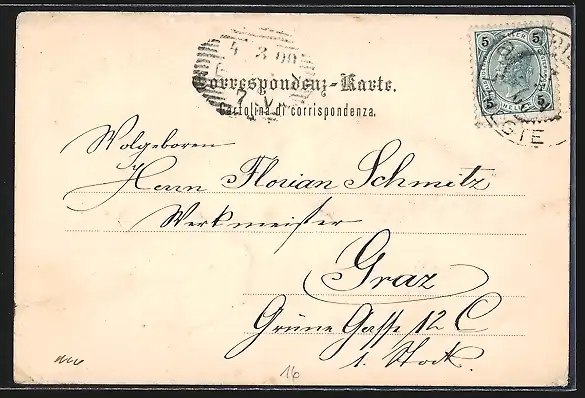 4. 3. 00
7. V.
5 5
5 5
Correspondenz-Karte.
Cartolina di corrispondenza.
Wolgeboren
Herrn Florian Schmitz
Werkmeister
Graz
Grüne Gasse 12 C
1. Stock.
16